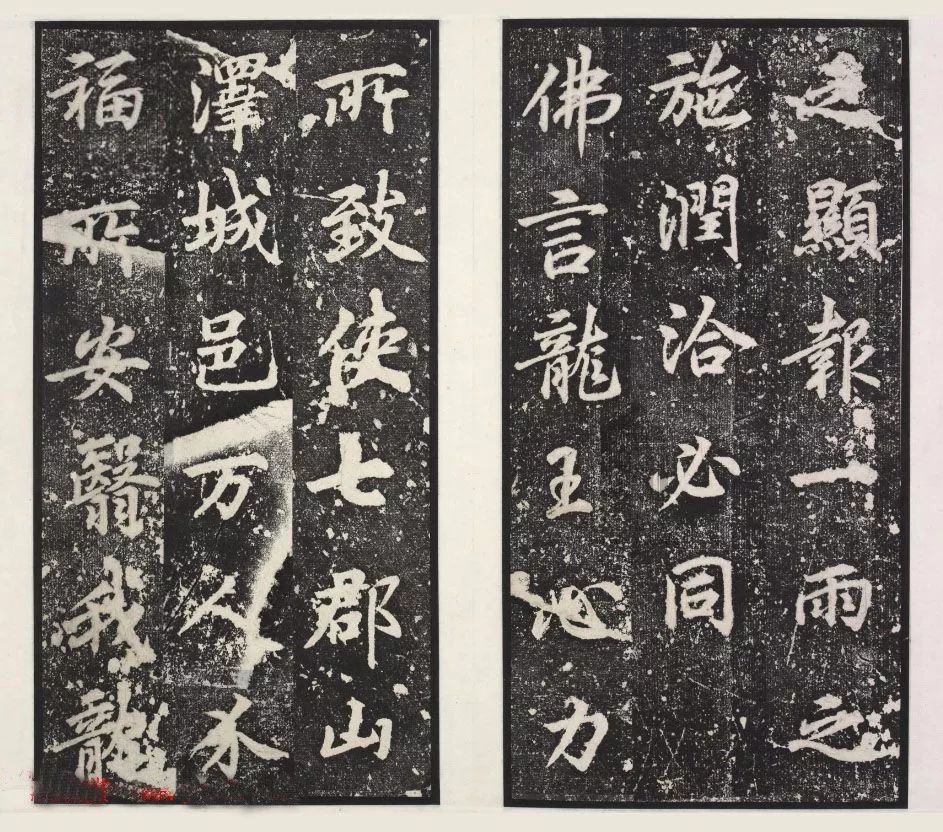 之顯報一雨之
施潤洽必同
佛言龍王心力
所致使七郡山
澤城邑万人介
福所安翳我龍